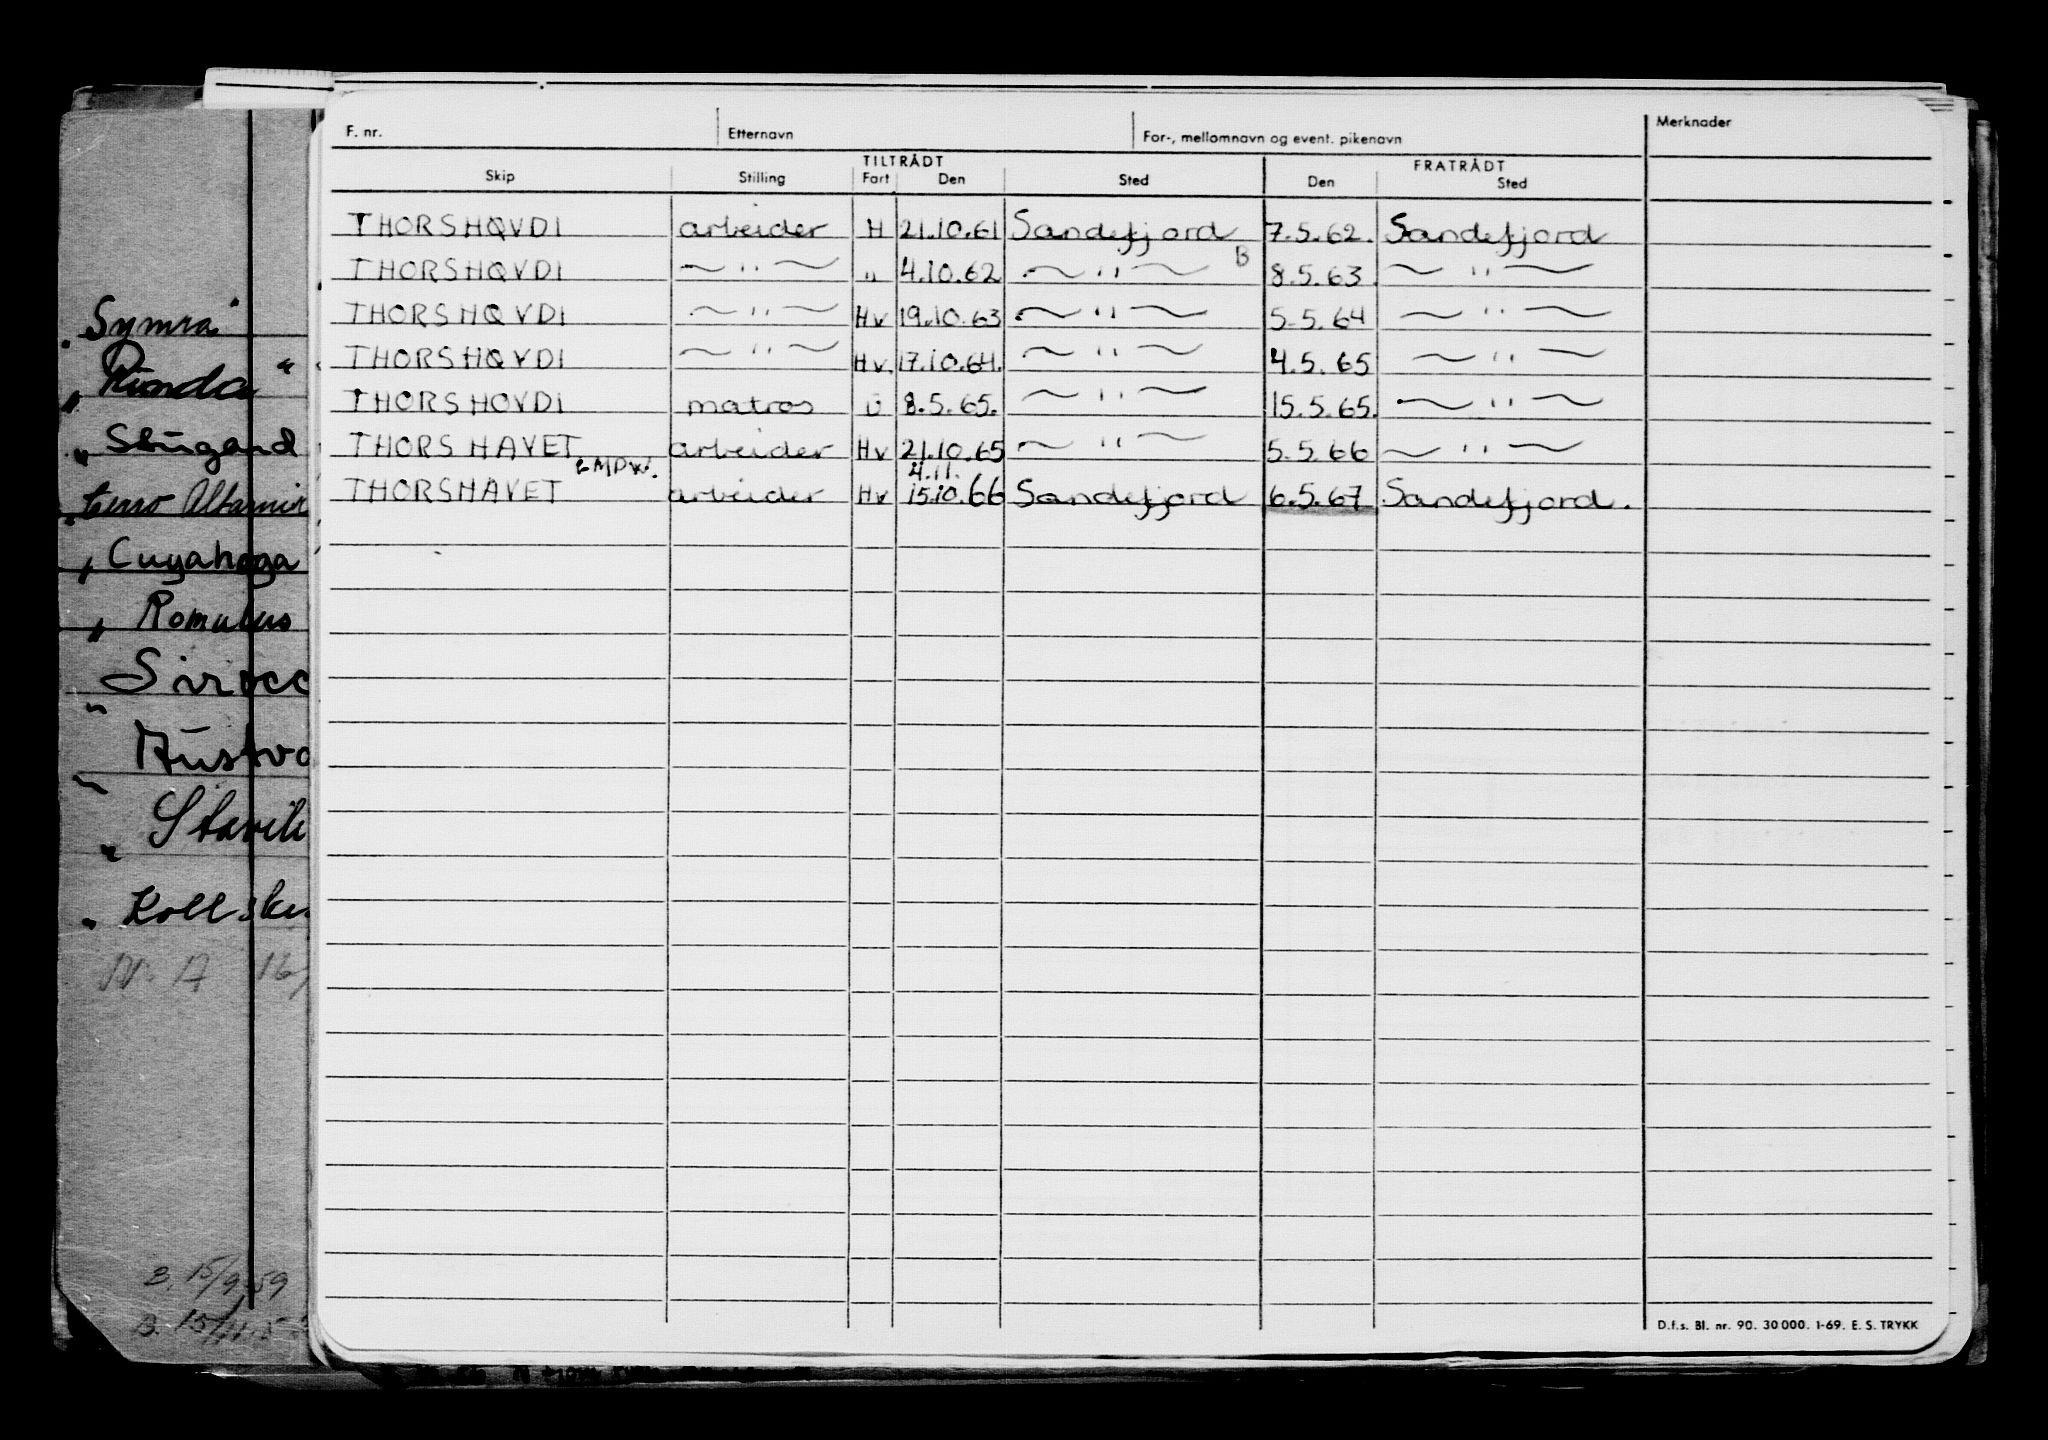 F. nr. Etternavn For-, mellomnavn og event. pikenavn Merknader
TILTRÅDT FRATRÅDT
Skip Stilling Fart Den Sted Den Sted
THORSHØVDI arbeider H 21.10.61 Sandefjord 7.5.62. Sandefjord
THORSHØVDI — " — " 4.10.62 — " — B 8.5.63 — " —
THORSHØVDI — " — Hv 19.10.63 — " — 5.5.64 — " —
THORSHØVDI — " — Hv 17.10.64. — " — 4.5.65 — " —
THORSHOVDI matros U 8.5.65. — " — 15.5.65. — " —
THORSHAVET arbeider Hv 21.10.65 — " — 5.5.66 — " —
4.11.
THORSHAVET arbeider Hv 15.10.66 Sandefjord 6.5.67 Sandefjord.
D.f.s. Bl. nr. 90. 30 000. 1-69. E. S. TRYKK
Symra
" Runda "
" Stugard
" Cuyahoga
" Romulus
" Sirocc
"
"
"
16/
B. 15/9-59
B. 15/11-5